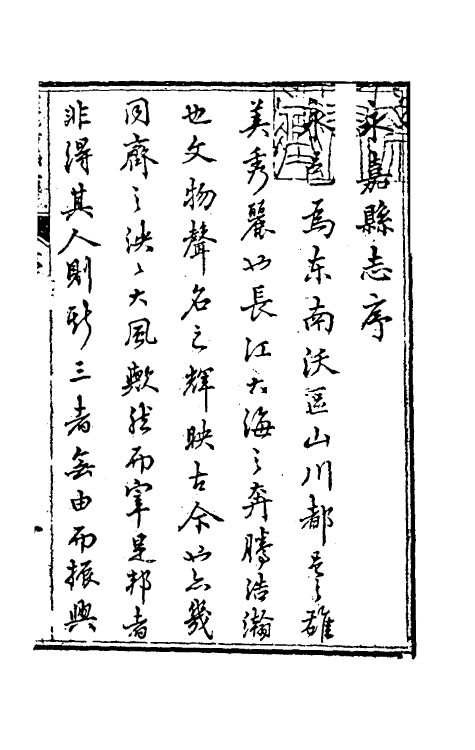 永嘉縣志序
永嘉為东南沃區山川都邑之雄
美秀麗如長江大海之奔騰浩瀚
也文物聲名之輝映古今如亦幾
同齊之泱泱大風歟然而宰是邦者
非得其人則斯三者無由而振興